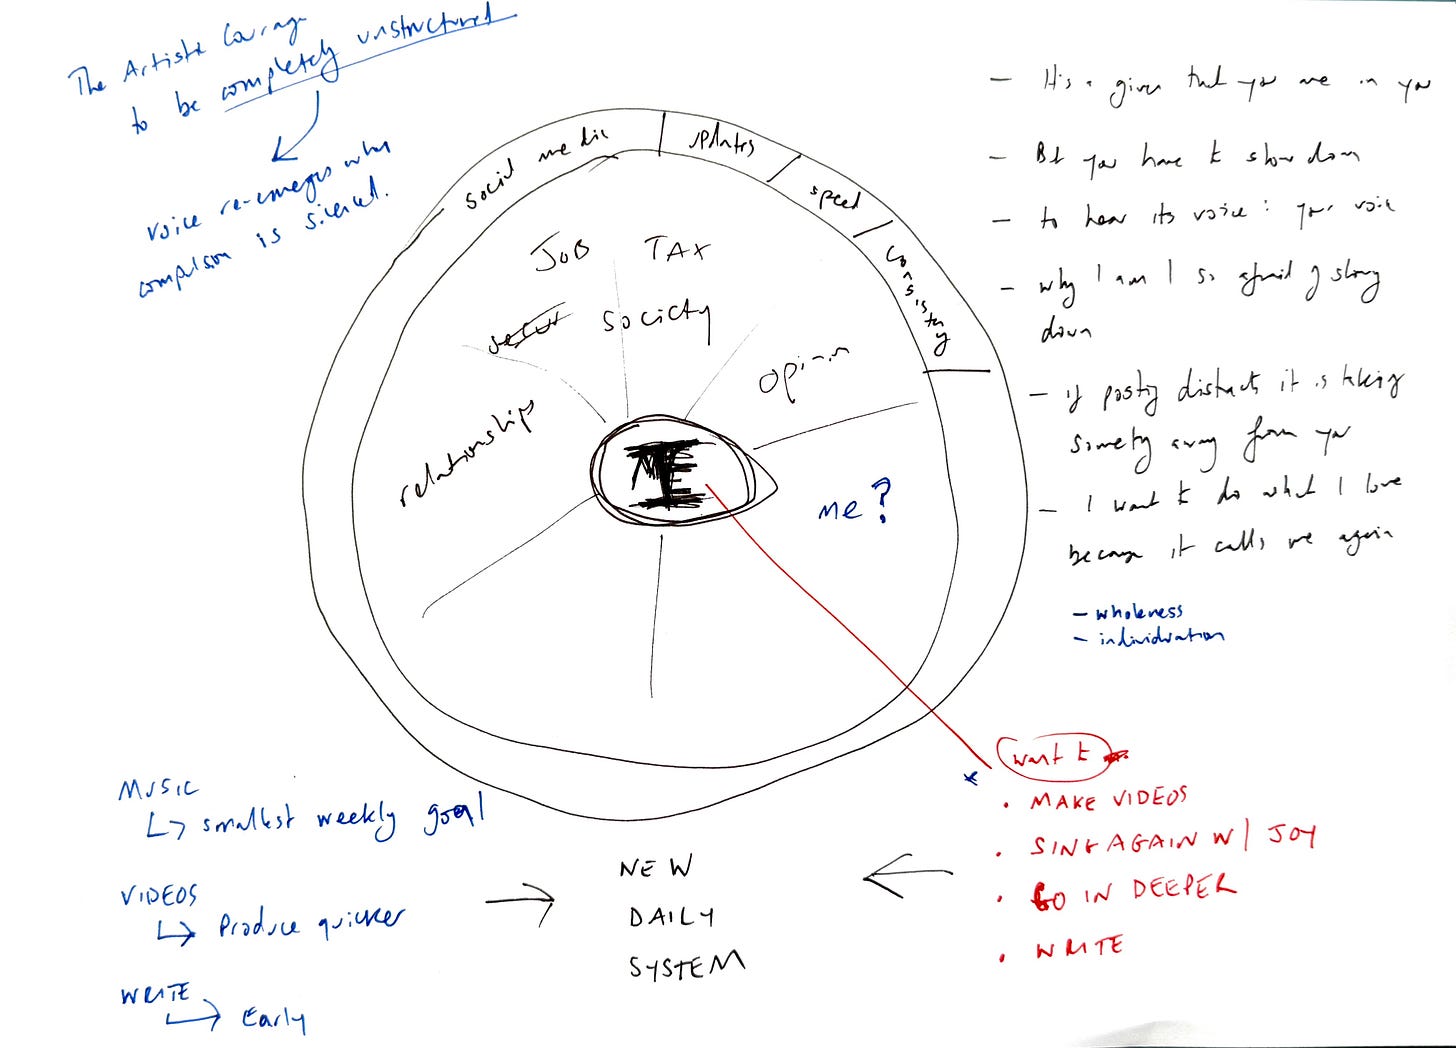 The Artistic Courage
to be completely unstructured
voice re-emerges when
compulsion is silenced.
social media
updates
speed
consistency
JOB TAX
society
opinion
relationships
ME
me?
– It's a given that you are in you
– But you have to slow down
– to hear its voice: your voice
– why I am I so afraid of slowing
down
– if posting distracts it is taking
something away from you
– I want to do what I love
because it calls me again
– wholeness
– individuation
want to
• MAKE VIDEOS
• SING AGAIN W/ JOY
• GO IN DEEPER
• WRITE
MUSIC
smallest weekly goal
VIDEOS
Produce quicker
WRITE
Early
NEW
DAILY
SYSTEM